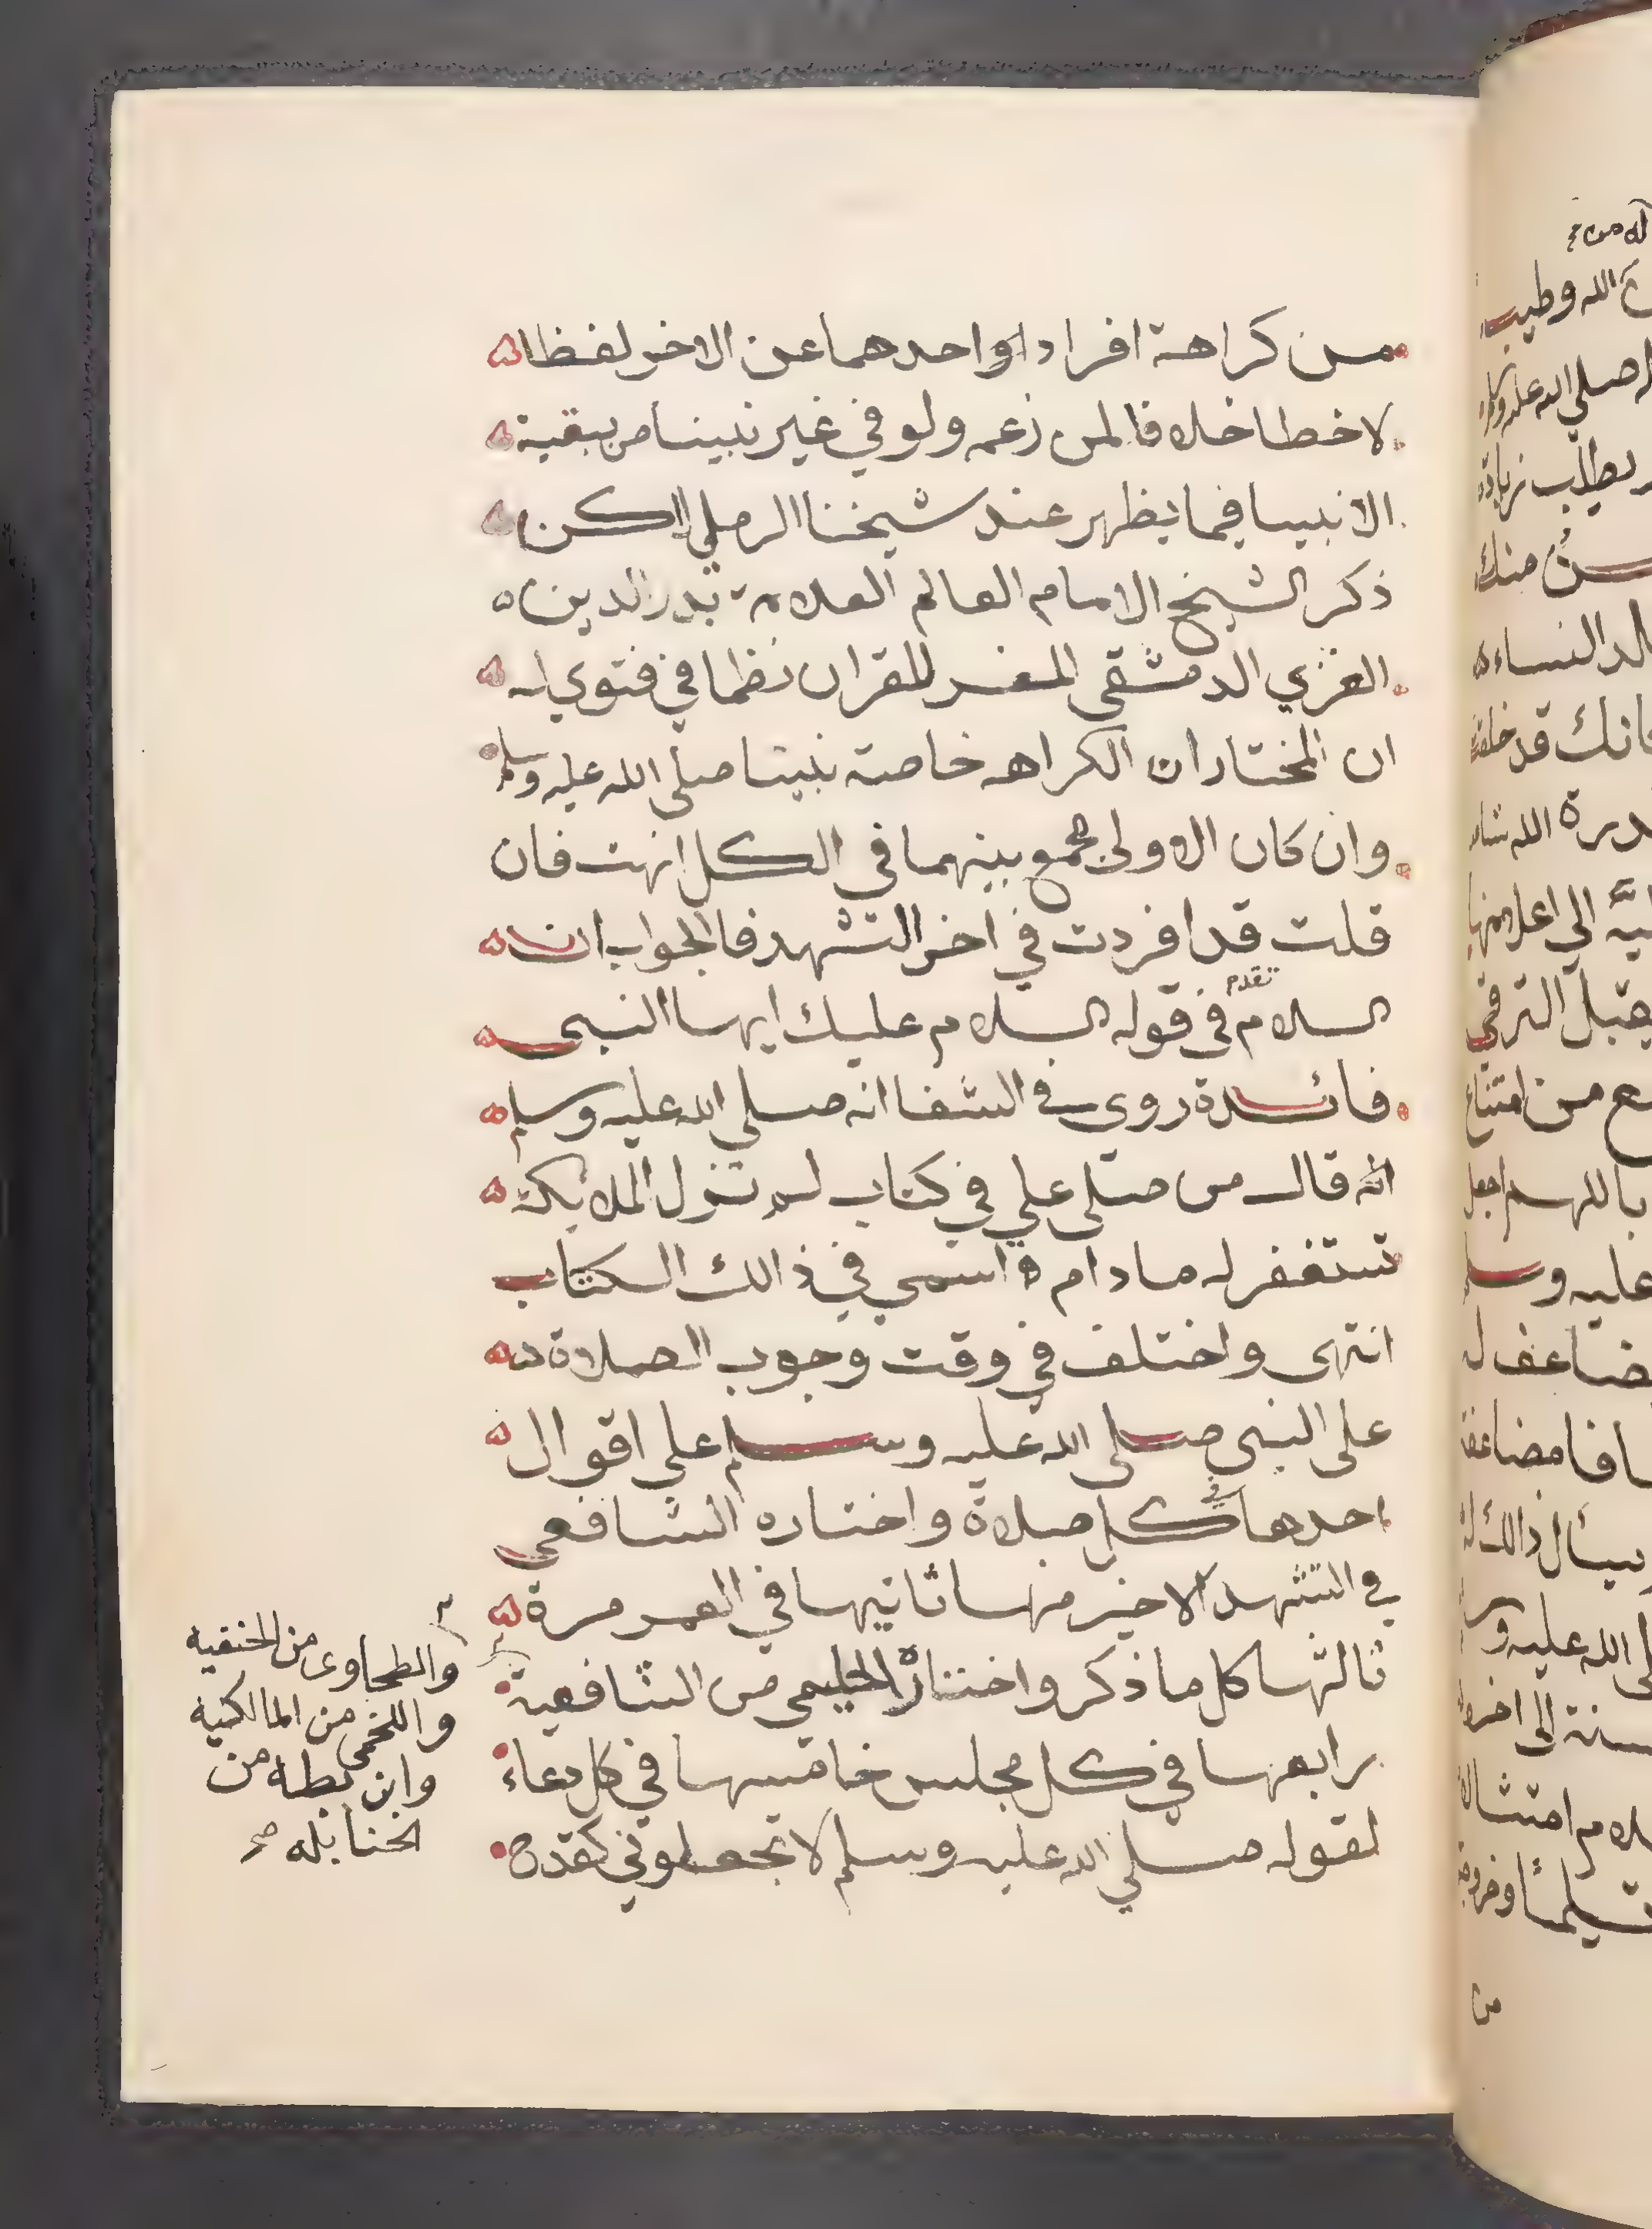 من كراهة افراد او احدهما عن الاخر لفظا
لا خطا خلافا لمن زعمه ولو في غير نبينا من بقية
الانبيا فيما يظهر عند شيخنا الرملي لكن
ذكر الشيخ الامام العالم العلامة بدر الدين
الغزي الدمشقي المفسر للقران نظما في فتوي له
ان المختار ان الكراهه خاصة بنبينا صلى الله عليه وسلم
وان كان الاولى الجمع بينهما في الكل انهت فان
قلت قد افردت في اخر التشهد فالجواب ان
السلام تقدم في قوله السلام عليك ايها النبي
فائدة روى في الشفا انه صلى الله عليه وسلم
انه قال من صلى علي في كتاب لم تزل الملايكة
تستغفر له ما دام اسمي في ذالك الكتاب
انتهى واختلف في وقت وجوب الصلاة
على النبي صلى الله عليه وسلم علي اقوال
احدها في كل صلاة واختاره الشافعي
في التشهد الاخير منها ثانيها في العمر مرة
ثالثها كل ما ذكر واختاره الحليمي من الشافعية
والطحاوى من الحنفيه
واللخمي من المالكيه
وابن بطه من
الحنابله صح
رابعها في كل مجلس خامسها في كل دعاء
لقوله صلي الله عليه وسلم لا تجعلوني كقدح